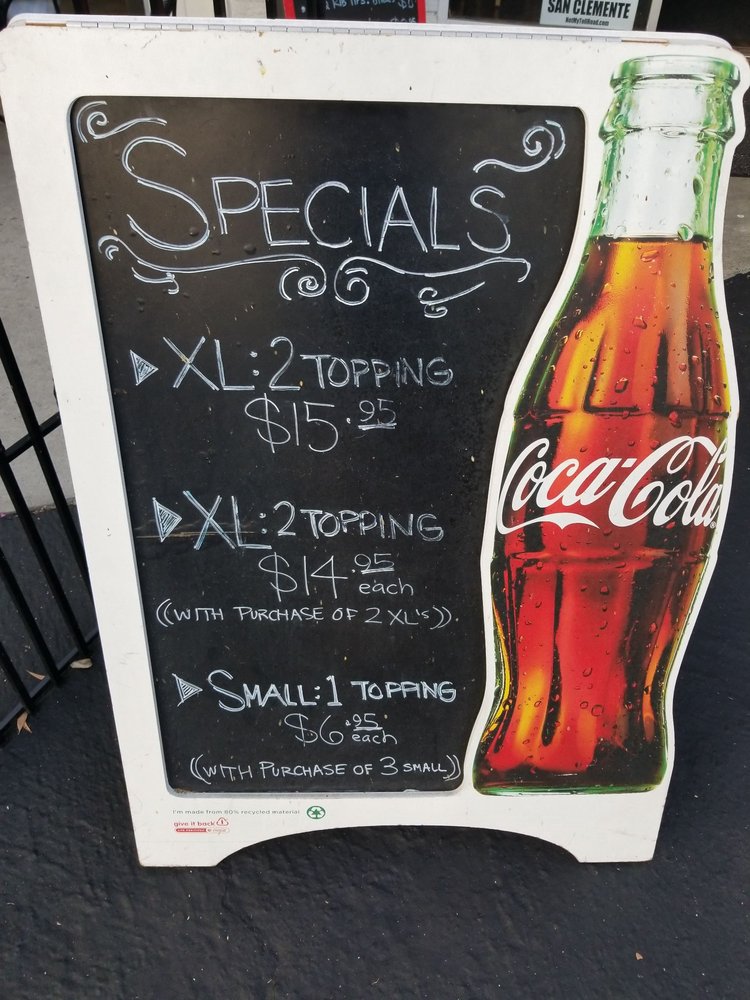 SAN CLEMENTE
NotMyTollRoad.com
SPECIALS
XL: 2 TOPPING
$15.95
XL: 2 TOPPING
$14.95 each
((WITH PURCHASE OF 2 XL'S)).
SMALL: 1 TOPPING
$6.95 each
((WITH PURCHASE OF 3 SMALL))
Coca-Cola
I'm made from 80% recycled material
give it back